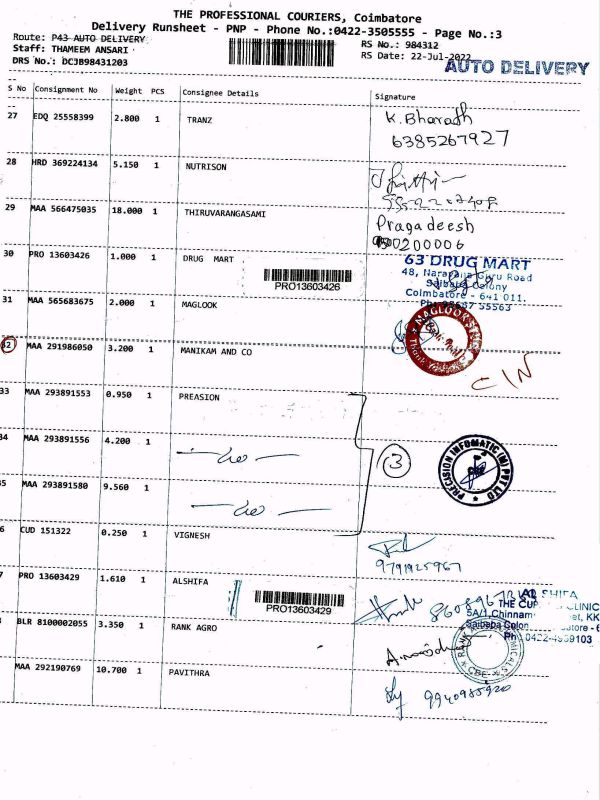 THE PROFESSIONAL COURIERS, Coimbatore
Delivery Runsheet - PNP - Phone No.:0422-3505555 - Page No.:3
Route: P43 AUTO DELIVERY
RS No.: 984312
Staff: THAMEEM ANSARI
RS Date: 22-Jul-2022
DRS No.: DCJB98431203
AUTO DELIVERY
S No Consignment No Weight PCS Consignee Details Signature
27 EDQ 25558399 2.800 1 TRANZ K. Bharath
6385267927
28 HRD 369224134 5.150 1 NUTRISON
29 MAA 566475035 18.000 1 THIRUVARANGASAMI Pragadeesh
200006
30 PRO 13603426 1.000 1 DRUG MART
PRO13603426
63 DRUG MART
48, Narayana Guru Road
Saibaba Colony
Coimbatore - 641 011.
31 MAA 565683675 2.000 1 MAGLOOK
MAGLOOR
Thank You
32 MAA 291986050 3.200 1 MANIKAM AND CO
33 MAA 293891553 0.950 1 PREASION
34 MAA 293891556 4.200 1 do
3
PRECISION INFOMATIC (M) PVT LTD
35 MAA 293891580 9.560 1 do
6 CUD 151322 0.250 1 VIGNESH
9791925967
7 PRO 13603429 1.610 1 ALSHIFA
PRO13603429
AL SHIFA
THE CUP CLINIC
5A/1 Chinnam et, KK
Saibaba Colon tore - 6
Ph : 0422-4959103
BLR 8100002055 3.350 1 RANK AGRO
MAA 292190769 10.700 1 PAVITHRA
9940985920